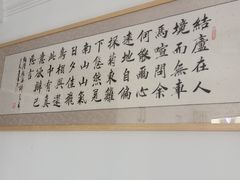 結廬在人
境而無車
馬喧問余
何能爾心
遠地自偏
採菊東籬
下悠然見
南山山氣
日夕佳飛
鳥相與還
此中有真
意欲辯已
忘言